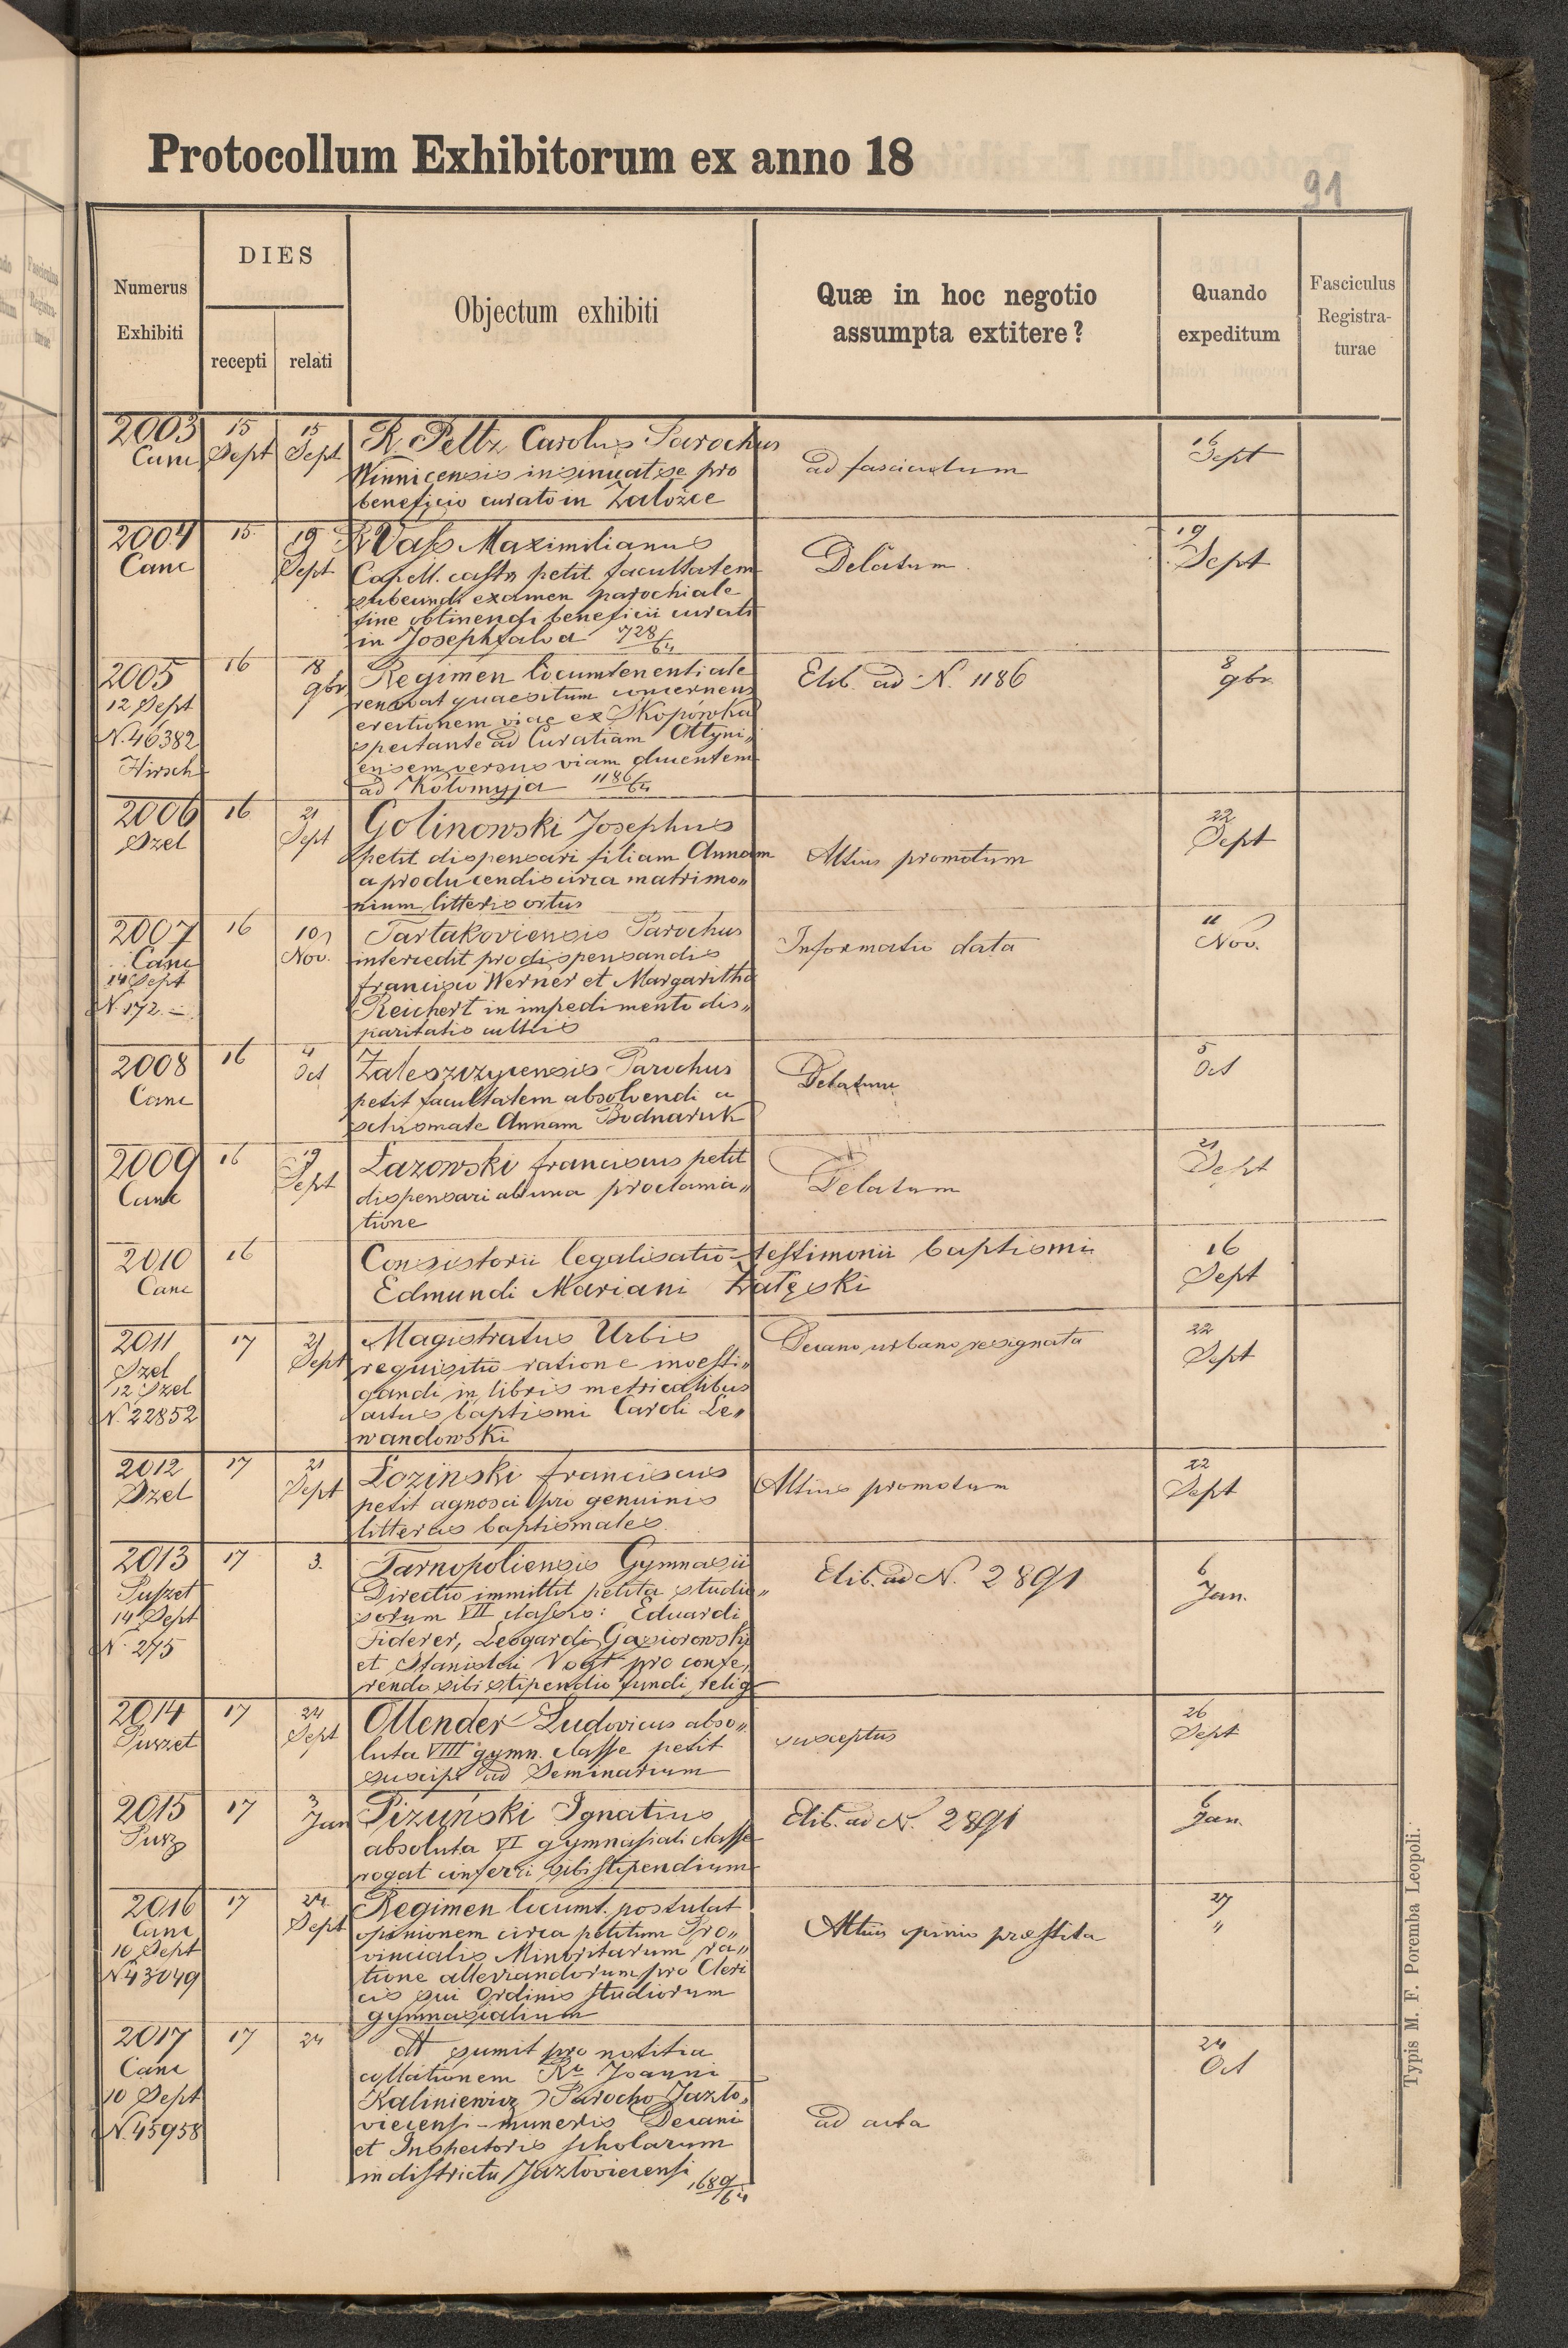 Protocollum Exhibitorum ex anno 18
91
Numerus Exhibiti
DIES
recepti
relati
Objectum exhibiti
Quæ in hoc negotio
assumpta extitere?
Quando
expeditum
Fasciculus
Registra-
turae
2003
Canc
15
Sept
15
Sept
R. Peltz Carolus Parochus
Winnicensis insinuat se pro
beneficio curato in Założce
ad fasciculum
16
Sept
2004
Canc
15
19
Sept
R Vass Maximilianus
Capell. castr petit facultatem
subeundi examen parochiale
fine obtinendi beneficii curati
in Josephfalva 728/64
Delatum
19
Sept
2005
12 Sept
N. 46382
Hirsch
16
18
9br
Regimen locumtenentiale
renovat quaesitum concernens
erectionem viae ex Skopówka
spectante ad Curatiam Ottyni„
ensem versus viam ducentem
ad Kołomyja 1186/64
Elib. ad N. 1186
8
9br.
2006
Szel
16
21
Sept
Golinowski Josephus
petit dispensari filiam Annam
a producendis circa matrimo„
nium litteris ortus
Altius promotum
22
Sept
2007
Canc
14 Sept
N. 172
16
10
Nov.
Tartakoviensis Parochus
intercedit pro dispensandis
Francisco Werner et Margaritha
Reichert in impedimento dis„
paritatis cultus
Informatio data
11
Nov.
2008
Canc
16
4
Oct
Zaleszczycensis Parochus
petit facultatem absolvendi a
schismate Annam Bodnaruk
Delatum
5
Oct
2009
Canc
16
19
Sept
Łazowski Franciscus petit
dispensari ab una proclama„
tione
Delatum
21
Sept
2010
Canc
16
Consistorii legalisatio testimonii baptismi
Edmundi Mariani Załęski
16
Sept
2011
Szel
12 Szel
N. 22852
17
21
Sept
Magistratus Urbis
requisitio ratione investi„
gandi in libris metricalibus
actus baptismi Caroli Le„
wandowski
Decano urbano resignata
22
Sept
2012
Szel
17
21
Sept
Łoziński Franciscus
petit agnosci pro genuinis
litteras baptismales
Altius promotum
22
Sept
2013
Puszet
14 Sept
N. 275
17
3.
Tarnopoliensis Gymnasii
Directio immittit petita studio„
sorum VII classis: Eduardi
Fiderer, Leogardi Gąsiorowski
et Stanislai Vogt pro confe„
rendo sibi stipendio fundi relig
Elib. ad N. 2891
6
Jan.
2014
Puszet
17
24
Sept
Ollender Ludovicus abso„
luta VIII gymn. classe petit
suscipi ad Seminarium
susceptus
26
Sept
2015
Pusz
17
3
Jan
Pizuński Ignatius
absoluta VI gymnasiali classe
rogat conferri sibi stipendium
Elib. ad N. 2891
6
Jan.
2016
Canc
10 Sept
N 43049
17
24
Sept
Regimen locumt. postulat
opinionem circa petitum Pro„
vincialis Minoritarum ra„
tione pro Cleri
cis sui Ordinis studiorum
gymnasialium
Altius opinio præstita
27
„
2017
Canc
10 Sept
N. 45958
17
24
dt sumit pro notitia
collationem Rdo Joanni
Kaliniewicz Parocho Jazło„
viecensi - muneris Decani
et Inspectoris scholarum
in districtu Jazłoviecensi 1689/64
ad acta
24
Oct
Typis M. F. Poremba Leopoli.